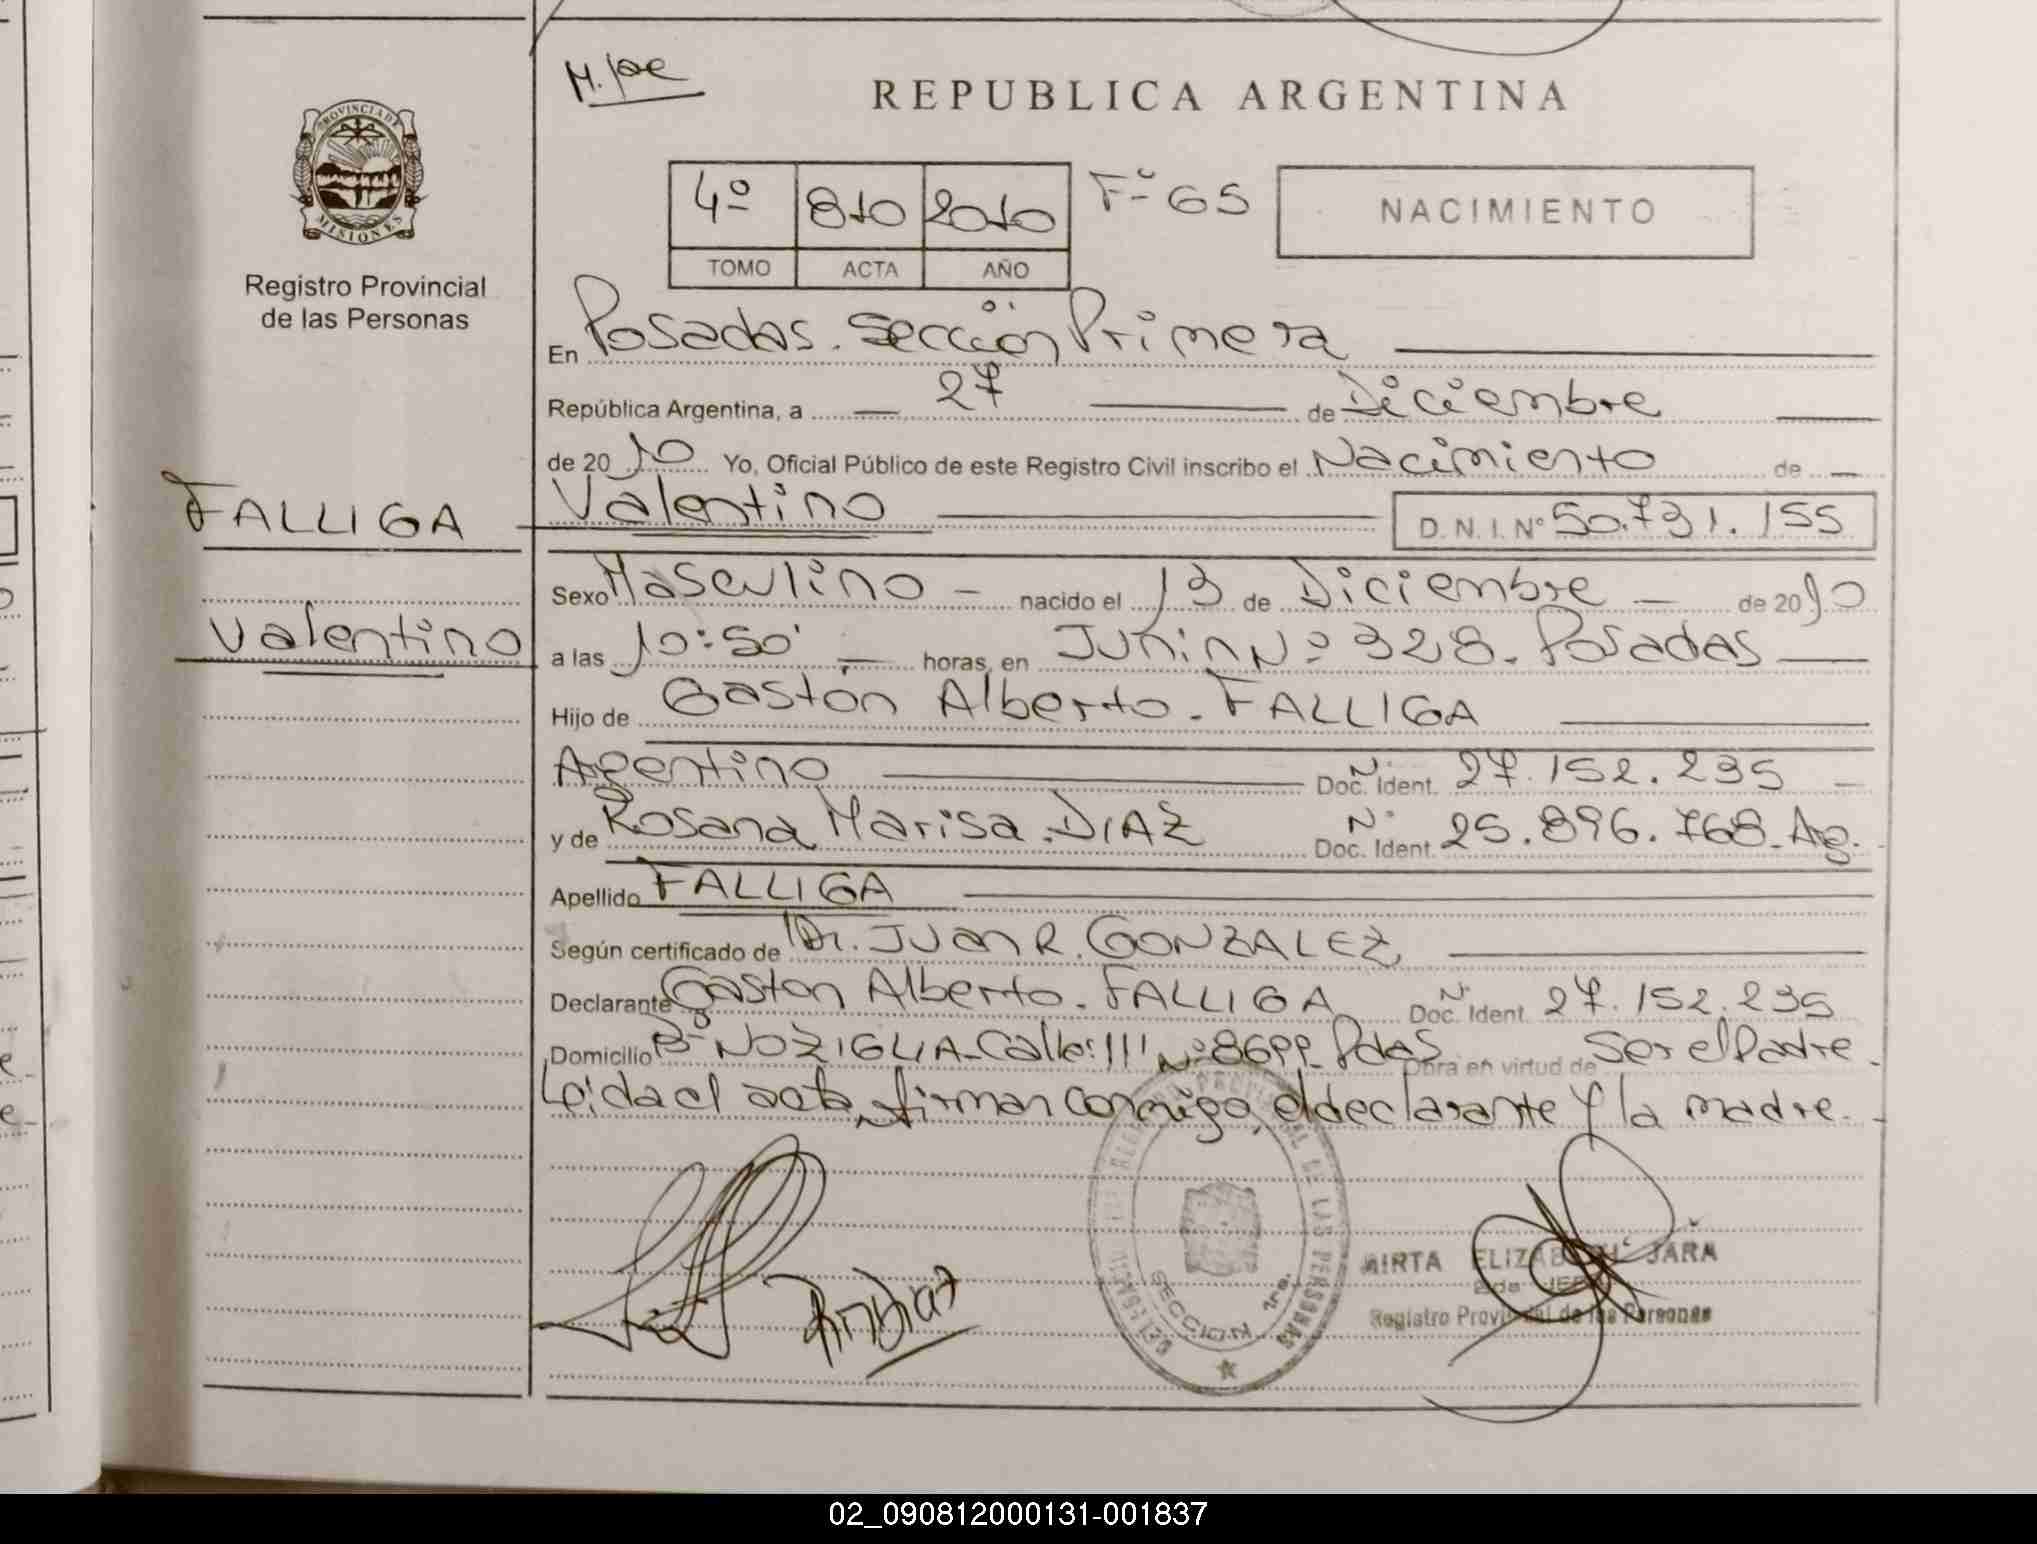 M. Jae
REPUBLICA ARGENTINA
PROVINCIA DE
MISIONES
4º 810 2010 Fº 65
NACIMIENTO
TOMO ACTA AÑO
Registro Provincial
de las Personas
En Posadas. Sección Primera
República Argentina, a 27 de Diciembre
de 2010 Yo, Oficial Público de este Registro Civil inscribo el Nacimiento de
FALLIGA
Valentino
D. N. I. Nº 50.731.155
Sexo Masculino - nacido el 13 de Diciembre - de 2010
Valentino
a las 10:50' horas, en Junin Nº 328. Posadas
Hijo de Gastón Alberto. FALLIGA
Agentino Doc. Ident. Nº 27.152.235
y de Rosana Marisa. DIAZ Doc. Ident. Nº 25.896.768. Ag.
Apellido FALLIGA
Según certificado de Dr. Juan R. GONZALEZ
Declarante Gaston Alberto. FALLIGA Doc. Ident. Nº 27.152.235
Domicilio Bº NOZIGLIA. Calle: 111 Nº 8699. Pdas. Obra en virtud de Ser el Padre.
Leida el acta, firman conmigo, el declarante y la madre.
REGISTRO PROVINCIAL DE LAS PERSONAS
SECCION 1ra.
MIRTA ELIZABETH JARA
2da JEFA
Registro Provincial de las Personas
02_090812000131-001837